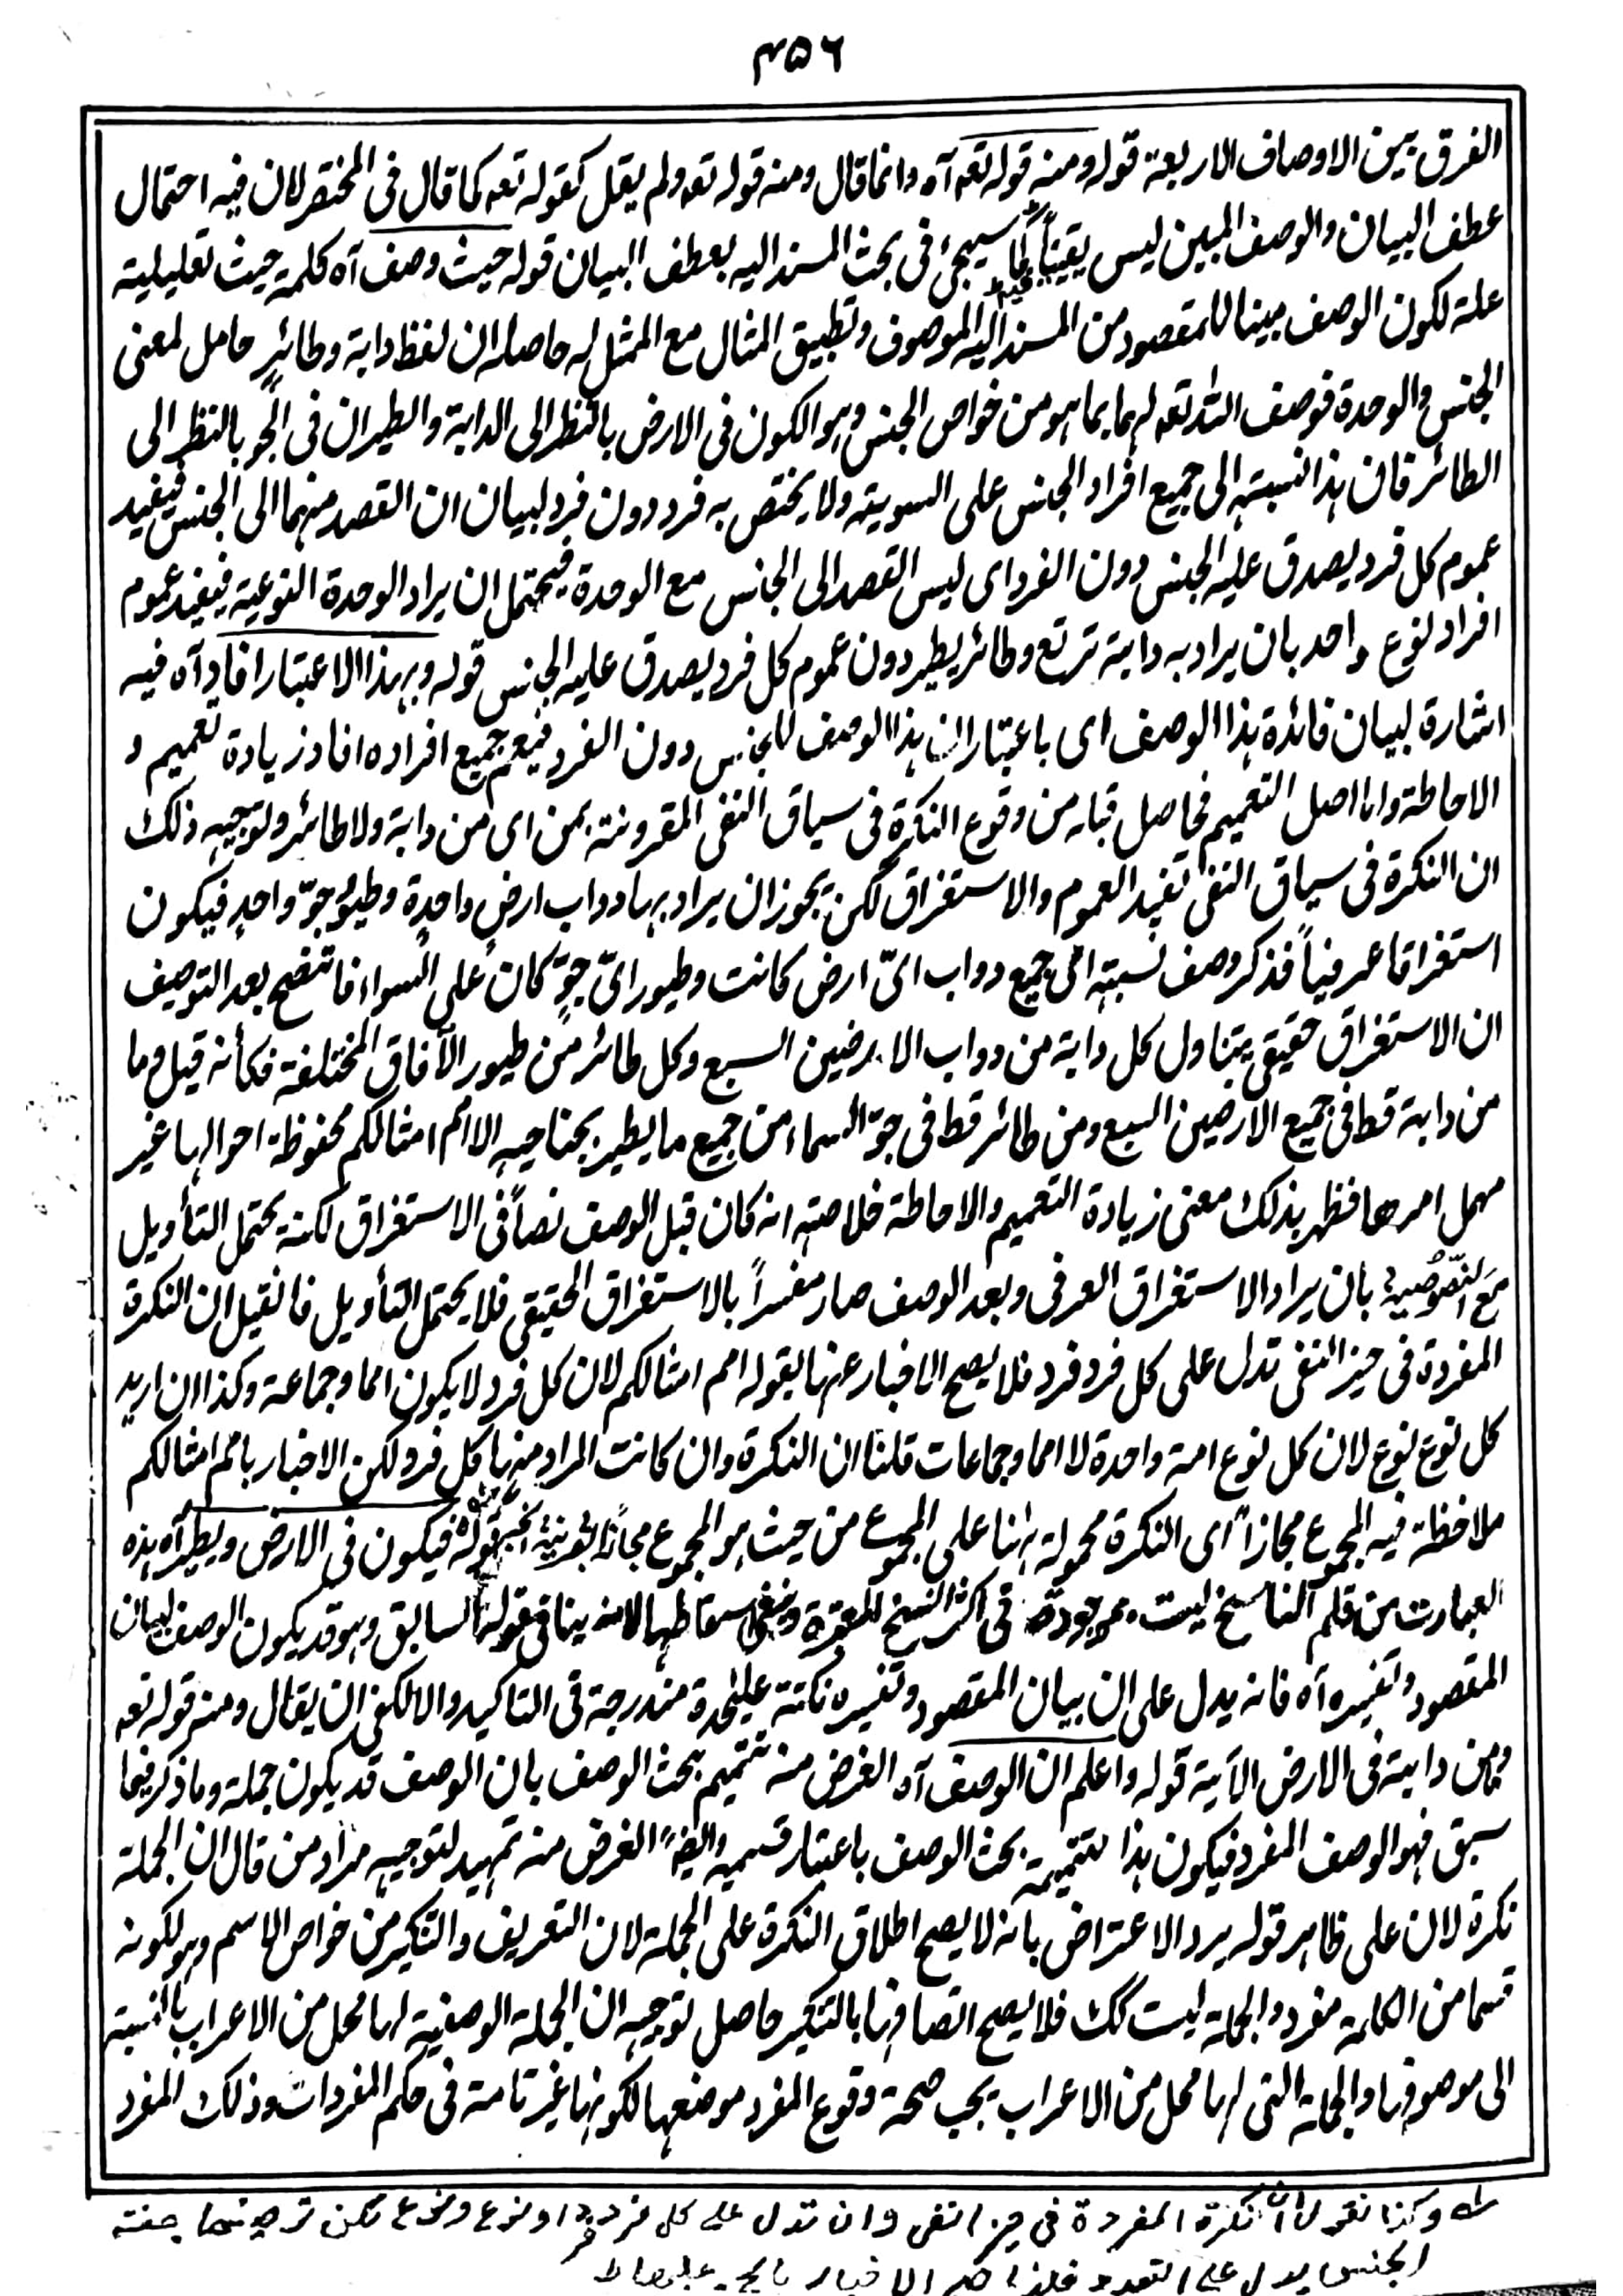 ٣٥٦
الفرق بين الاوصاف الاربعة قوله ومنه قوله تعه آه وانما قال ومنه قوله تعه ولم يقل كقوله تعه كما قال فى المختصر لان فيه احتمال
عطف البيان والوصف المبين ليس يقيناً كما سيجئ فى بحث المسند اليه بعطف البيان قوله حيث وصف آه كلمة حيث تعليلية
علة لكون الوصف مبينا للمقصود من المسند اليه الموصوف وتطبيق المثال مع الممثل له حاصله ان لفظ دابة وطائرٍ حامل لمعنى
الجنس والوحدة فوصف الله تعه لهما بما هو من خواص الجنس وهو الكون فى الارض بالنظر الى الدابة والطيران فى الجو بالنظر الى
الطائر فان هذا نسبته الى جميع افراد الجنس على السوية ولا يختص به فرد دون فرد لبيان ان القصد منهما الى الجنس فيفيد
عموم كل فرد يصدق عليه الجنس دون الفرد اى ليس القصد الى الجنس مع الوحدة فيحتمل ان يراد الوحدة النوعية فيفيد عموم
افراد نوع واحد بان يراد به دابة ترتع وطائر يطير دون عموم كل فرد يصدق عليه الجنس قوله وبهذا الاعتبار افاد آه فيه
اشارة لبيان فائدة هذا الوصف اى باعتبار ان هذا الوصف للجنس دون الفرد فيعم جميع افراده افاد زيادة تعميم و
الاحاطة واما اصل التعميم فحاصل قبله من وقوع النكرة فى سياق النفى المقرونة بمن اى من دابة ولا طائر وتوجيه ذلك
ان النكرة فى سياق النفى تفيد العموم والاستغراق لكن يجوز ان يراد بها دواب ارضٍ واحدةٍ وطيور جوّ واحدٍ فيكون
استغراقا عرفياً فذكر وصف نسبته الى جميع دواب اىّ ارض كانت وطيور اىّ جوٍّ كان على السواء فاتضح بعد التوصيف
ان الاستغراق حقيقى يتناول كل دابة من دواب الارضين السبع وكل طائر من طيور الآفاق المختلفة فكأنه قيل وما
من دابة قط فى جميع الارضين السبع ومن طائر قط فى جوّ السماء من جميع ما يطير بجناحيه الا امم امثالكم محفوظة احوالها غير
مهمل امرها فظهر بذلك معنى زيادة التعميم والاحاطة خلاصته انه كان قبل الوصف نصاً فى الاستغراق لكنه يحتمل التأويل
مَعَ النصّوصية بان يراد الاستغراق العرفى وبعد الوصف صار مفسراً بالاستغراق الحقيقى فلا يحتمل التأويل فان قيل ان النكرة
المفردة فى حيز النفى تدل على كل فرد فرد فلا يصح الاخبار عنها بقوله امم امثالكم لان كل فرد لا يكون امما وجماعة وكذا ان اريد
كل نوع نوع لان كل نوع امة واحدة لا امما وجماعات قلنا ان النكرة وان كانت المراد منها كل فرد لكن الاخبار بامم امثالكم
ملاحظة فيه المجموع مجازاً اى النكرة محمولة ههنا على المجموع من حيث هو المجموع مجازاً بقرينة الخبر قوله فيكون فى الارض ويطير آه هذه
العبارت من قلم الناسخ ليست موجودة فى اكثر النسخ المعتبرة وينبغى اسقاطها لانه ينافى قوله السابق وهو قد يكون الوصف لبيان
المقصود وتفسيره آه فانه يدل على ان بيان المقصود وتفسيره نكتة عليٰحدة مندرجة فى التاكيد والا لكفى ان يقال ومنه قوله تعه
وما من دابة فى الارض الآية قوله واعلم ان الوصف آه الغرض منه تتميم بحث الوصف بان الوصف قد يكون جملة وما ذكر فيما
سبق فهو الوصف المفرد فيكون هذا تتميمة بحث الوصف باعتبار قسميه وايضاً الغرض منه تمهيد لتوجيه مراد من قال ان الجملة
نكرة لان على ظاهر قوله يرد الاعتراض بانه لا يصح اطلاق النكرة على الجملة لان التعريف والتنكير من خواص الاسم وهو لكونه
قسما من الكلمة مفرد والجملة ليست كك فلا يصح اتصافها بالتنكير حاصل توجيه ان الجملة الوصفية لها محل من الاعراب بالنسبة
الى موصوفها والجملة التى لها محل من الاعراب يجب صحة وقوع المفرد موضعها لكونها غير تامة فى حكم المفردات وذلك المفرد
وكذا نقول ان النكرة المفردة فى حيز النفى وان تدل على كل فرد فرد او نوع ونوع لكن توصيفها بصفة
الجنس يدل على التعدد فلذا صح الاخبار